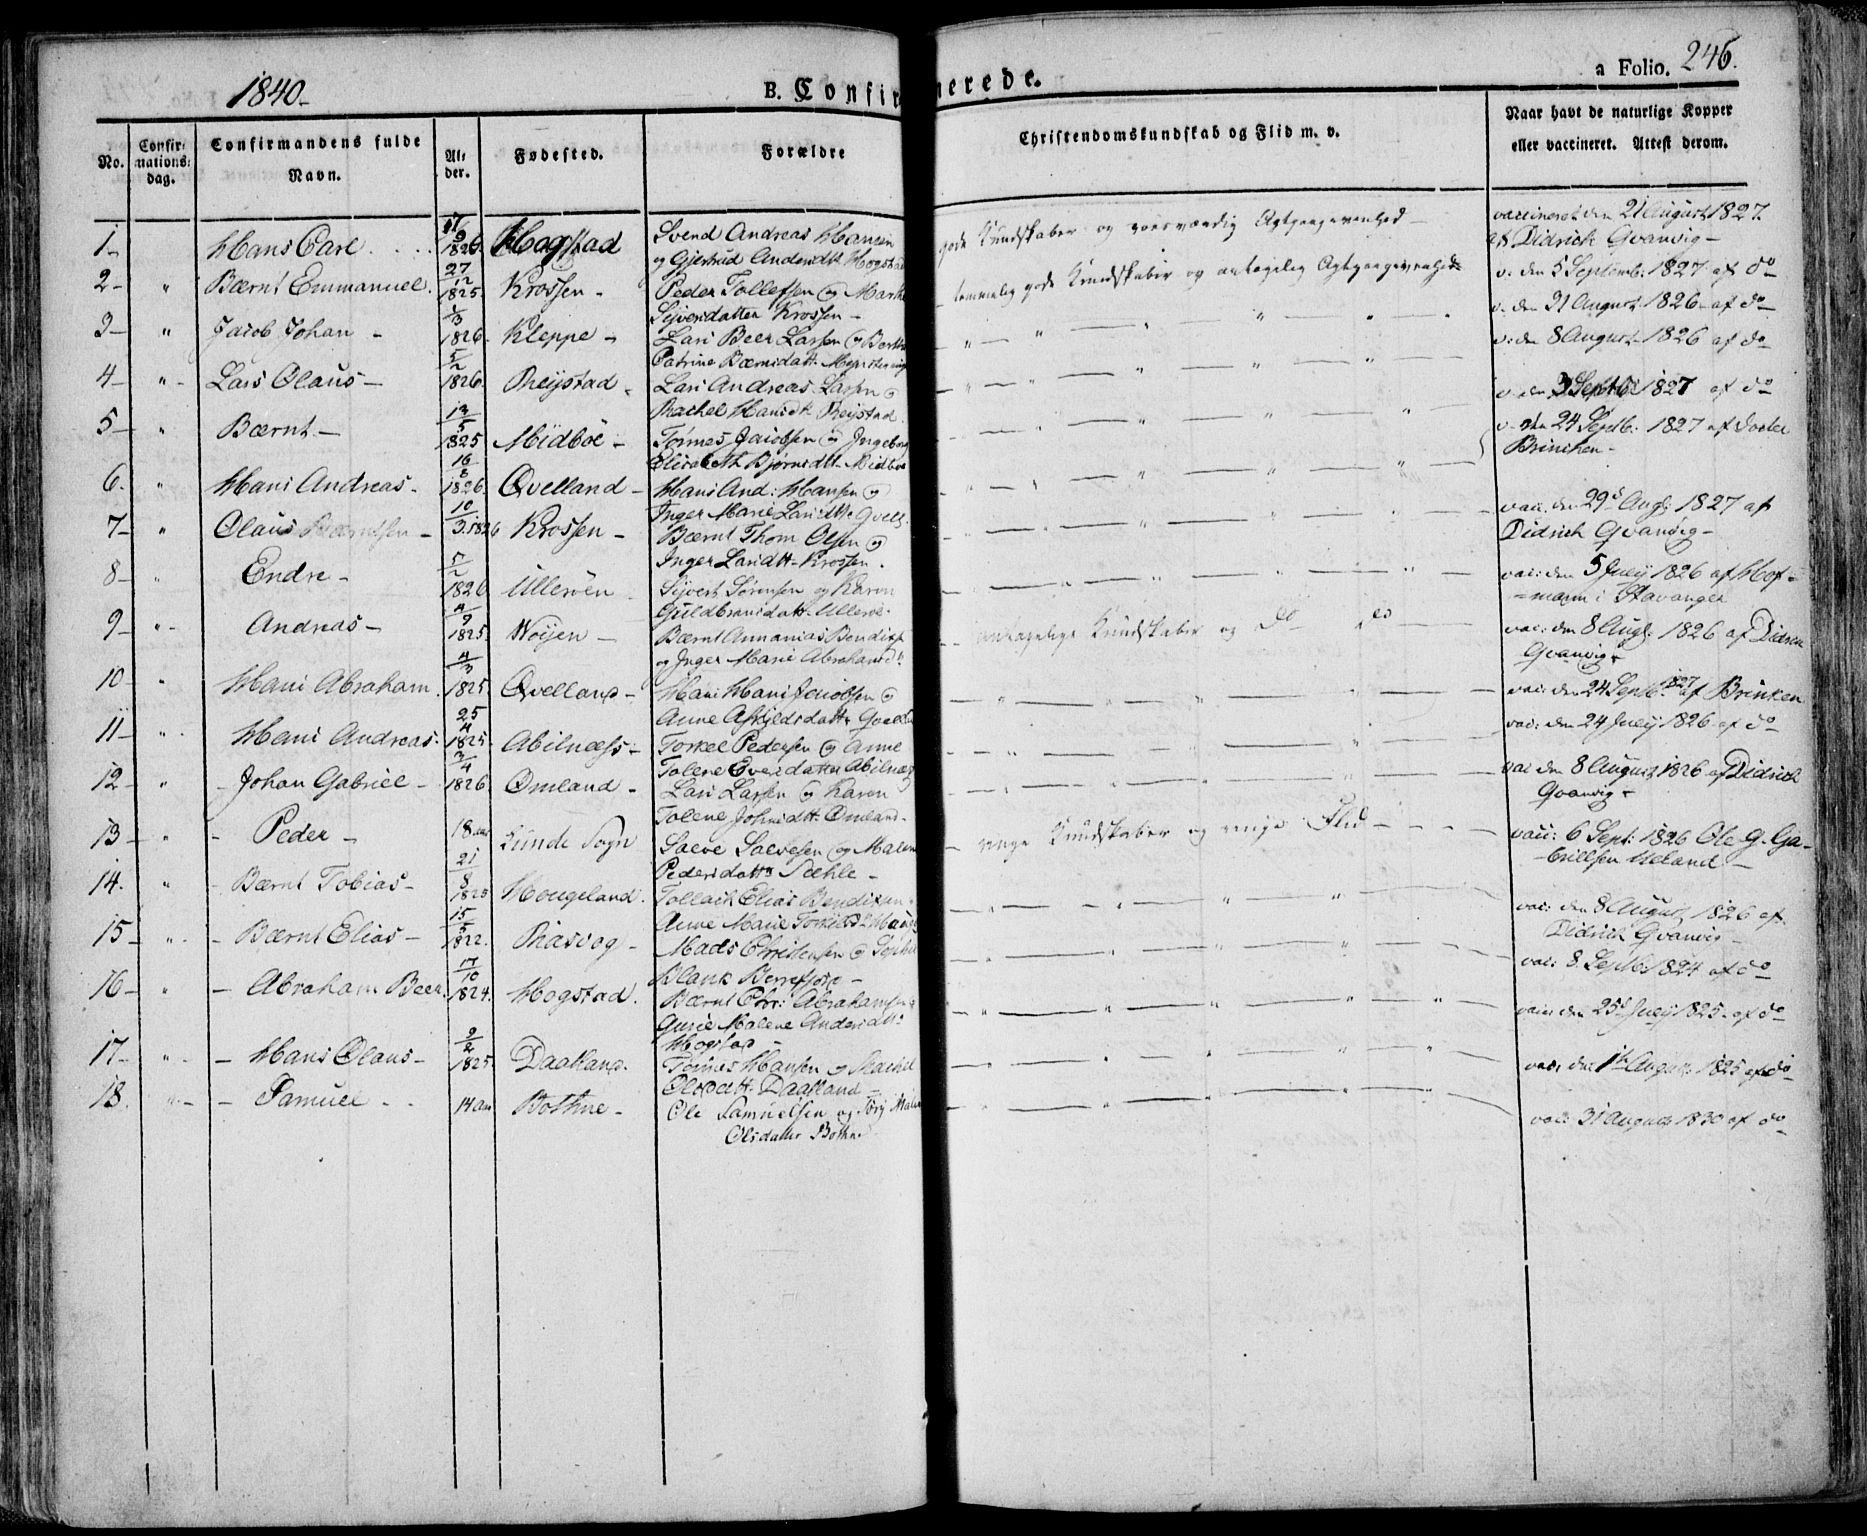 1840.
B. Confirmerede.
a Folio. 246.
No.
Confir-
mations-
dag.
Confirmandens fulde
Navn.
Al-
der.
Fødested.
Forældre
Christendomskundskab og Flid m. v.
Naar havt de naturlige Kopper
eller vaccineret. Attest derom.
1 Hans Carl 1826 Hogstad Svend Andreas Hansen
og Gjertrud Andersdtt. Hogstad
gode Kundskaber og roesværdig Agtpaagivenhed
vaccineret den 21 August 1827
af Didrich Gvanvig
2 " Bærnt Emmanuel 27/12 1825 Krossen Peder Tollefsen og Marthe
Siversdatter Krossen
temmelig gode Kundskaber og antagelig Agtpaagivenhed
v. den 5 Septemb: 1827 af do
3 " Jacob Johan 1/3 1826 Kleppe Lars Beer Larsen og Berthe
Catrine Bærnsdatt.
v. den 21 August 1826 af do
4 " Lars Olaus 5/2 1826 Reystad Lars Andreas Larsen og
Rachel Hansdtt. Reystad
v. den 8 August 1826 af do
5 " Bærnt 13/5 1825 Midbøe Tønnes Jacobsen og Ingeborg
Elisabeth Bjørnsdtt. Midbøe
v. den 3 Septb: 1827 af do
6. " Hans Andreas 16/8 1826 Qvelland Hans And: Hansen og
Inger Marie Larsdtt. Qvell.
v. den 24 Septb: 1827 af Doctor
Brinchen
7 " Olaus Bærntsen 10/3 1826 Krossen Bærnt Thom Olsen og
Inger Larsdtt. Krossen
vac: den 29d Aug: 1827 af
Didrich Gvanvig
8 Endre 5/2 1826 Ulleröen Syvert Sørensen og Karen
Guldbransdatt. Ulleröe
vac: den 5 July 1826 af Hof-
mann i Stavanger
9 " Andreas 4/9 1825 Woijen Bærnt Annanias Bendixs
og Inger Marie Abrahamsd
antagelige Kundskaber og do do
vac: den 8 Aug: 1826 af Didrich
Gvanvig
10 " Hans Abraham 4/3 1825 Qvelland Hans Hans Jacobsen og
Anne Askjeldsdatt. Qvelland
vac: den 24 Septb. 1827 af Brinken
11 " Hans Andreas 25/4 1825 Abilnæss Torkel Pedersen og Anne
Tolene Eversdatter Abilnæs
vac: den 24 July 1826 af do
12 " Johan Gabriel 2/4 1826 Omland Lars Larsen og Karen
Tolene Johnsdtt. Omland
vac den 8 August 1826 af Didrich
Gvanvig
13 " Peder 18 aar Lunde Sogn Salve Salvesen og Malene
Pedersdatter Stehle
ringe Kundskaber og ringe Flid
vac: 6 Sept: 1826 Ole G. Ga-
brielsen Ueland
14. " Bærnt Tobias 21/8 1825 Hougeland Tollack Elias Bendixsen
Anne Marie Torkilsd Houge
vac: den 8 August 1826 af
Didrich Gvanvig
15 " Bærnt Elias 15/5 1822. Rasvog Mads Christensen og Sophie
Blank Berrefjord
vac: 8. Septb: 1824 af do
16 " Abraham Beer 17/10 1824. Hogstad Bærnt Chr: Abrahamsen
Gurie Malene Andersdtt.
Hogstad
vac: den 25d July 1825 af do
17 " Hans Olaus 9/2 1825 Daatland Tønnes Hansen og Rachel
Olsdtt. Daatland
vac: den 1te August 1825 af do
18. " Samuel 14 aar Bothne Ole Samuelsen og Siri Malene
Olsdatter Bothne
vac: 31 August 1830 af do